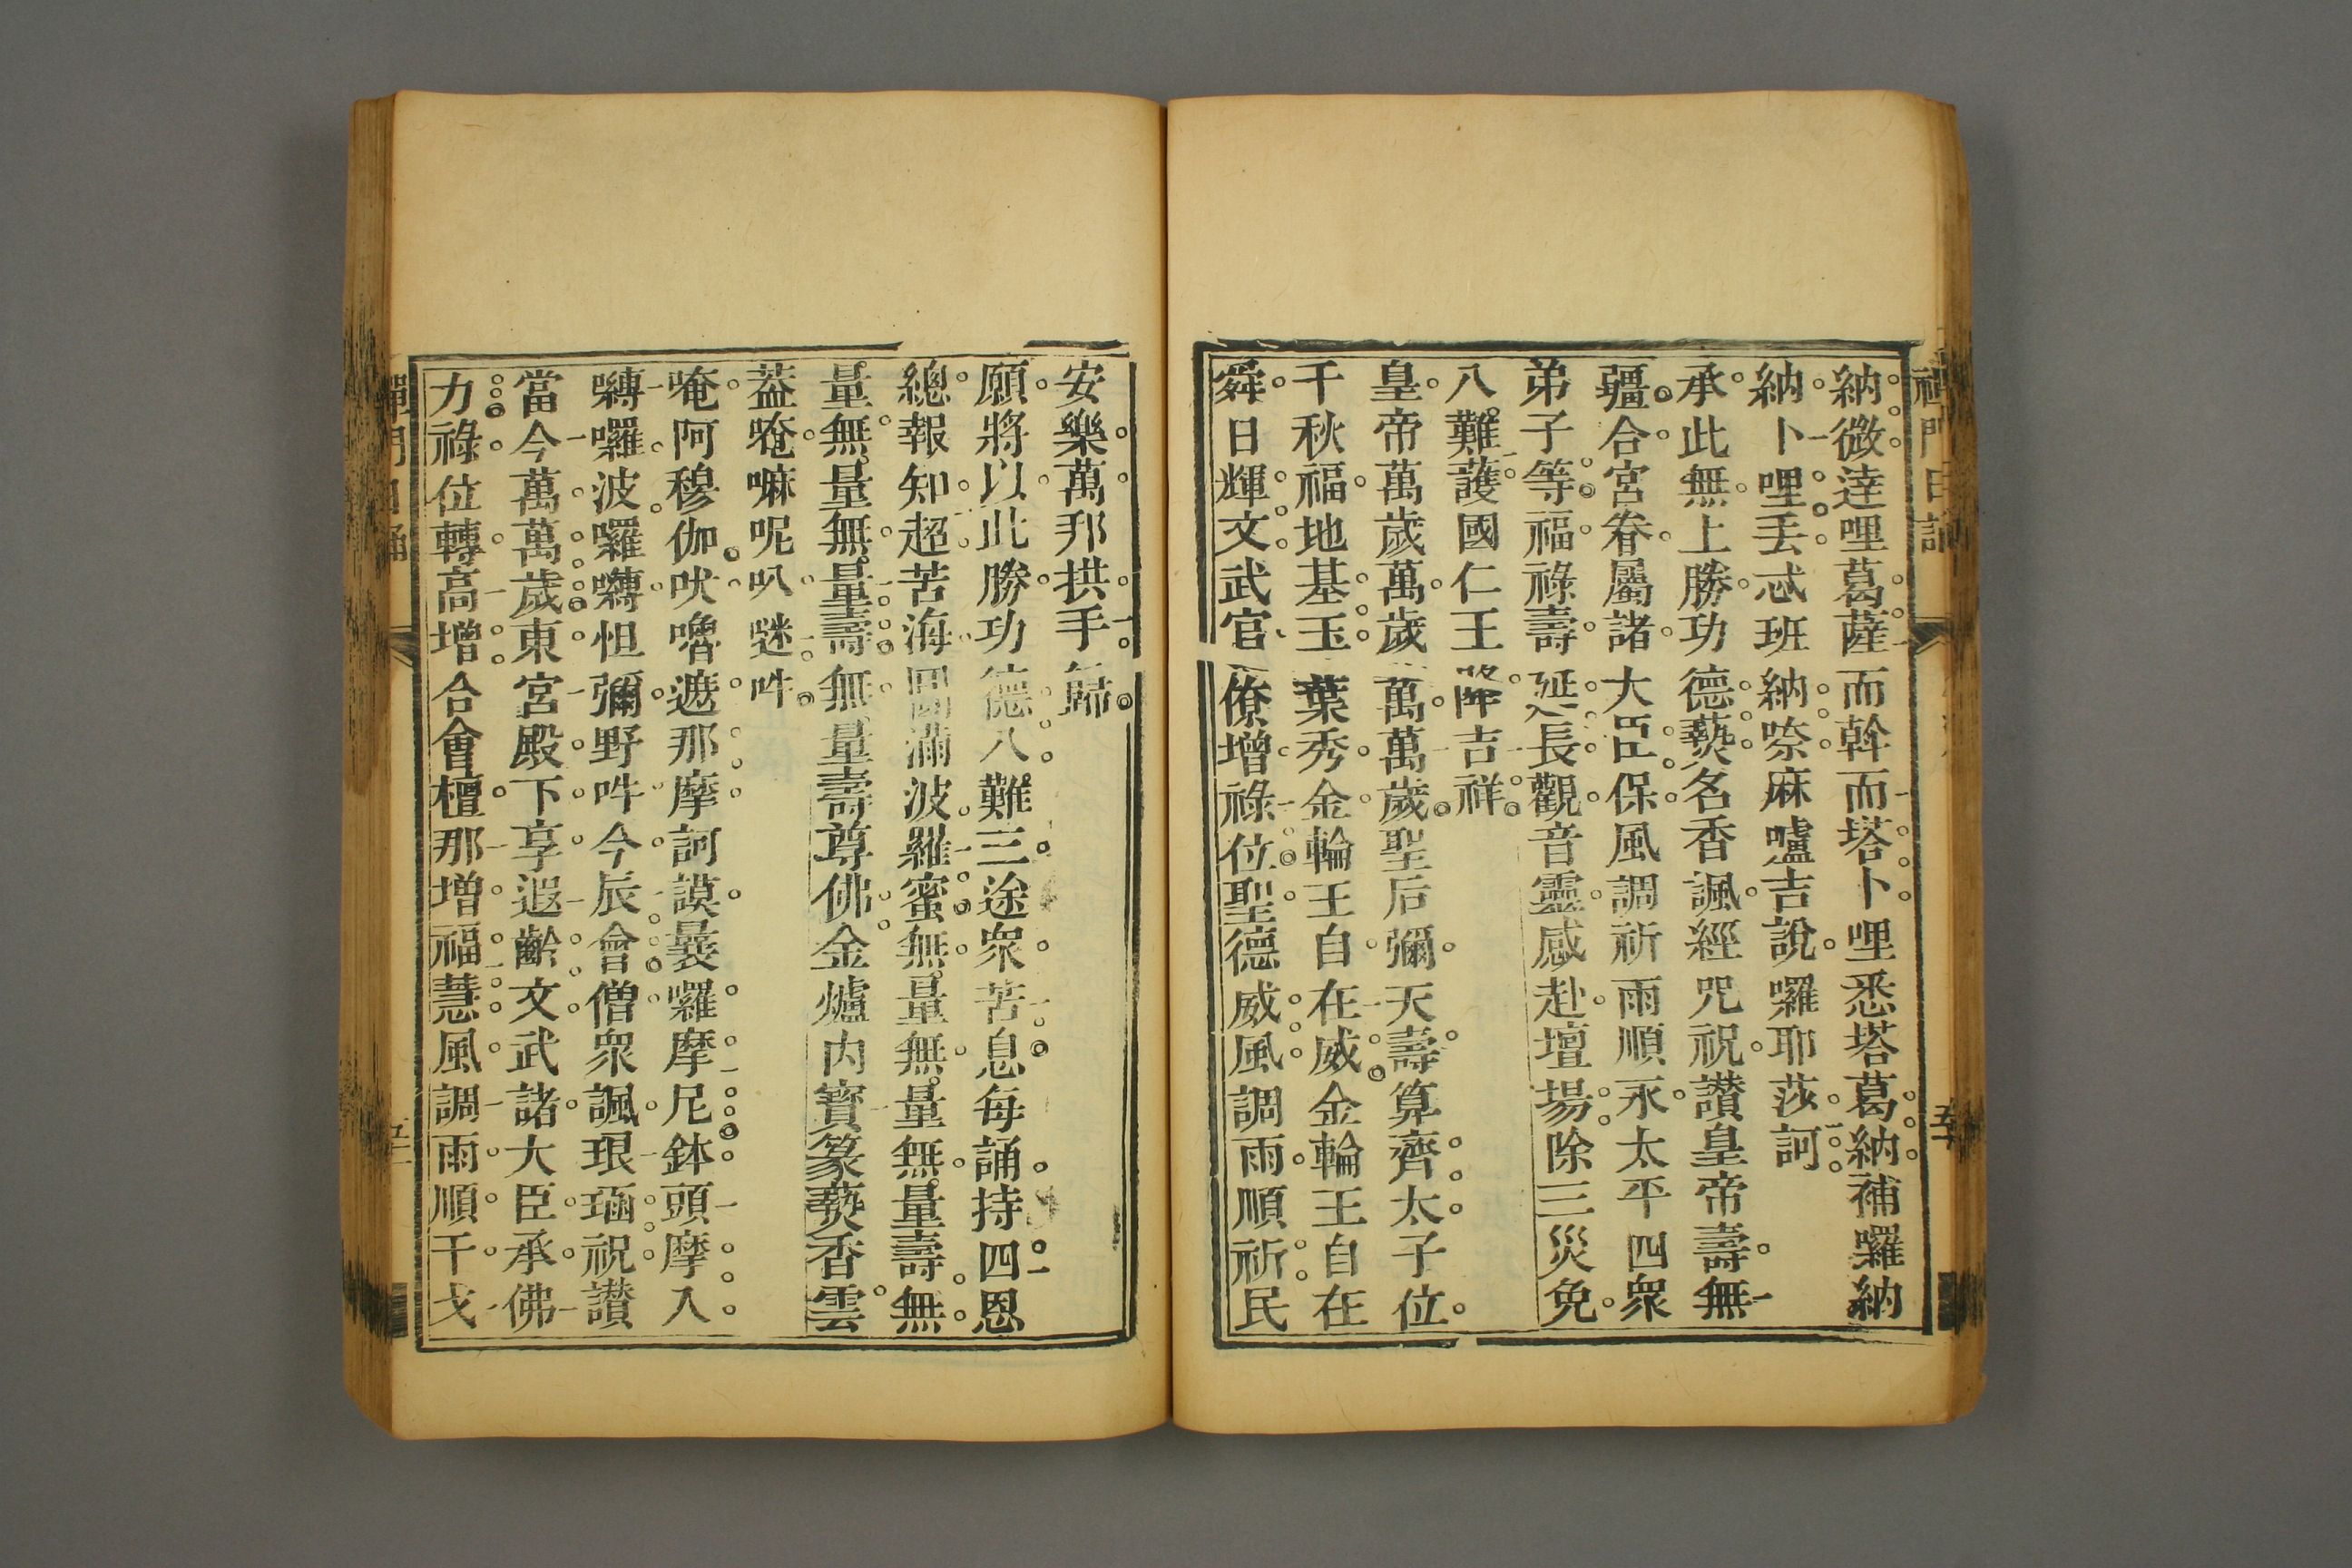 納微達哩葛薩而斡而塔卜哩悉塔葛納補囉納
納卜哩丟忒班納㖠麻嚧吉說囉耶莎訶
承此無上勝功德爇名香諷經咒祝讃皇帝壽無
疆合宮眷屬諸大臣保風調祈雨順永太平四衆
弟子等福祿壽延長觀音靈感赴壇塲除三災免
八難護國仁王降吉祥
皇帝萬歲萬歲萬萬歲聖后彌天壽算齊太子位
千秋福地基玉葉秀金輪王自在威金輪王自在
舜日輝文武官僚增祿位聖德威風調雨順祈民
安樂萬邦拱手歸
願將以此勝功德八難三途衆苦息每誦持四恩
總報知超苦海圓滿波羅蜜無量無量無量壽無
量無量無量壽無量壽尊佛金爐内寳篆爇香雲
葢唵嘛呢叭㘑吽
唵阿穆伽吠嚕遮那摩訶謨曩囉摩尼鉢頭摩入
嚩囉波囉嚩怛彌野吽今辰會僧衆諷琅函祝讃
當今萬萬歲東宮殿下享遐齡文武諸大臣承佛
力祿位轉高增合會檀那增福慧風調雨順干戈
禪門日誦